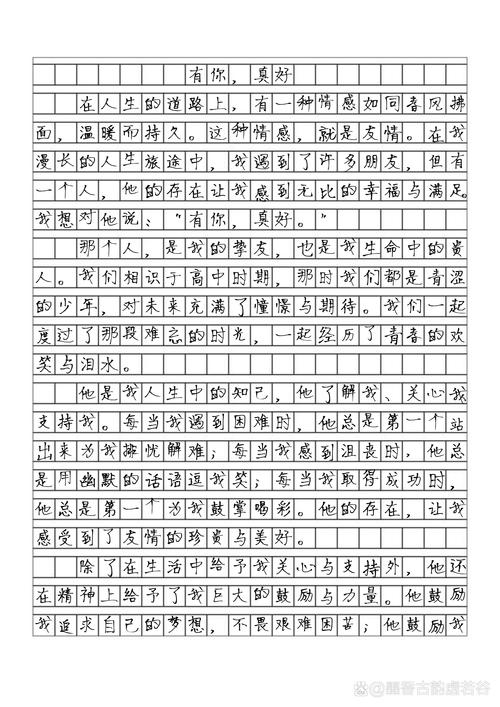 有你，真好
在人生的道路上，有一种情感如同春风拂
面，温暖而持久。这种情感，就是友情。在我
漫长的人生旅途中，我遇到了许多朋友，但有
一个人，他的存在让我感到无比的幸福与满足。
我想对他说：“有你，真好。”
那个人，是我的挚友，也是我生命中的贵
人。我们相识于高中时期，那时我们都是青涩
的少年，对未来充满了憧憬与期待。我们一起
度过了那段难忘的时光，一起经历了青春的欢
笑与泪水。
他是我人生中的知己，他了解我、关心我
支持我。每当我遇到困难时，他总是第一个站
出来为我排忧解难；每当我感到沮丧时，他总
是用幽默的话语逗我笑；每当我取得成功时，
他总是第一个为我鼓掌喝彩。他的存在，让我
感受到了友情的珍贵与美好。
除了在生活中给予我关心与支持外，他还
在精神上给予了我巨大的鼓励与力量。他鼓励
我追求自己的梦想，不畏艰难困苦；他鼓励我